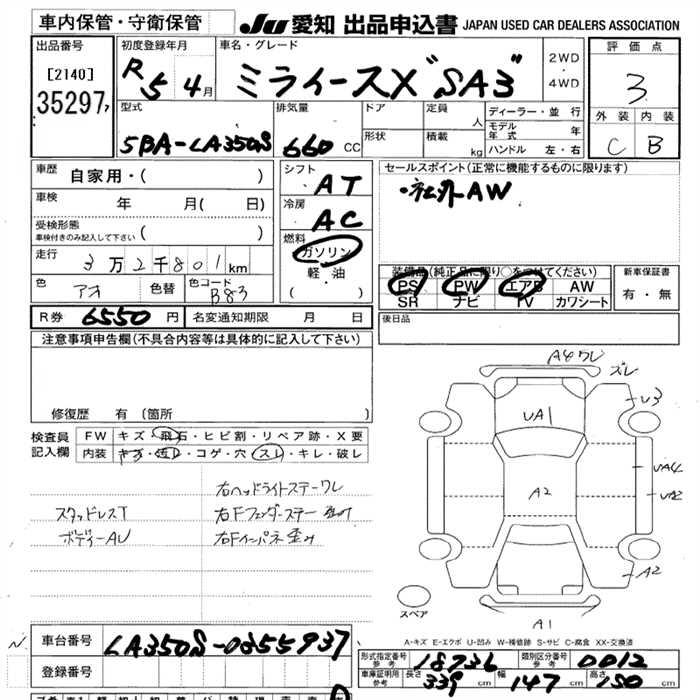 車内保管・守衛保管
JU 愛知 出品申込書 JAPAN USED CAR DEALERS ASSOCIATION
出品番号
[2140]
35297
初度登録年月
R5 4月
車名・グレード
ミライースX"SAⅢ"
2WD
・
4WD
評価点
3
外装 内装
C B
型式
5BA-LA350S
排気量
660 CC
ドア
形状
定員 人
積載 kg
ディーラー・並行
モデル年式 年
ハンドル 左・右
車歴
自家用・( )
車検 年 月( 日)
受検形態
車検付きのみ記入して下さい ( )
走行
3万2千801km
色 アオ
色替
色コード B83
シフト AT
冷房 AC
燃料
ガソリン
軽・油
( )
セールスポイント(正常に機能するものに限ります)
・社外AW
装備品(純正品に限り○をつけてください)
PS PW エアB AW
SR ナビ TV カワシート
新車保証書
有・無
R券 6550円
名変通知期限 月 日
後日品
注意事項申告欄(不具合内容等は具体的に記入して下さい)
修復歴 有 (箇所 )
検査員記入欄
FW キズ・飛石・ヒビ割・リペア跡・X要
内装 キズ・汚レ・コゲ・穴・スレ・キレ・破レ
右ヘッドライトステーワレ
スタッドレスT 右Fフェンダーステー歪み
ボディーAU 右Fインパネ歪み
A4ワレ
ズレ
U3
UA1
UA4
A2
U2
A2
スペア
A1
A-キズ E-エクボ U-凹み W-補修跡 S-サビ C-腐食 XX-交換済
車台番号 LA350S-0355937
登録番号
形式指定番号 18736
類別区分番号 0012
車庫証明用参考
長さ 339cm
幅 147cm
高さ 150cm